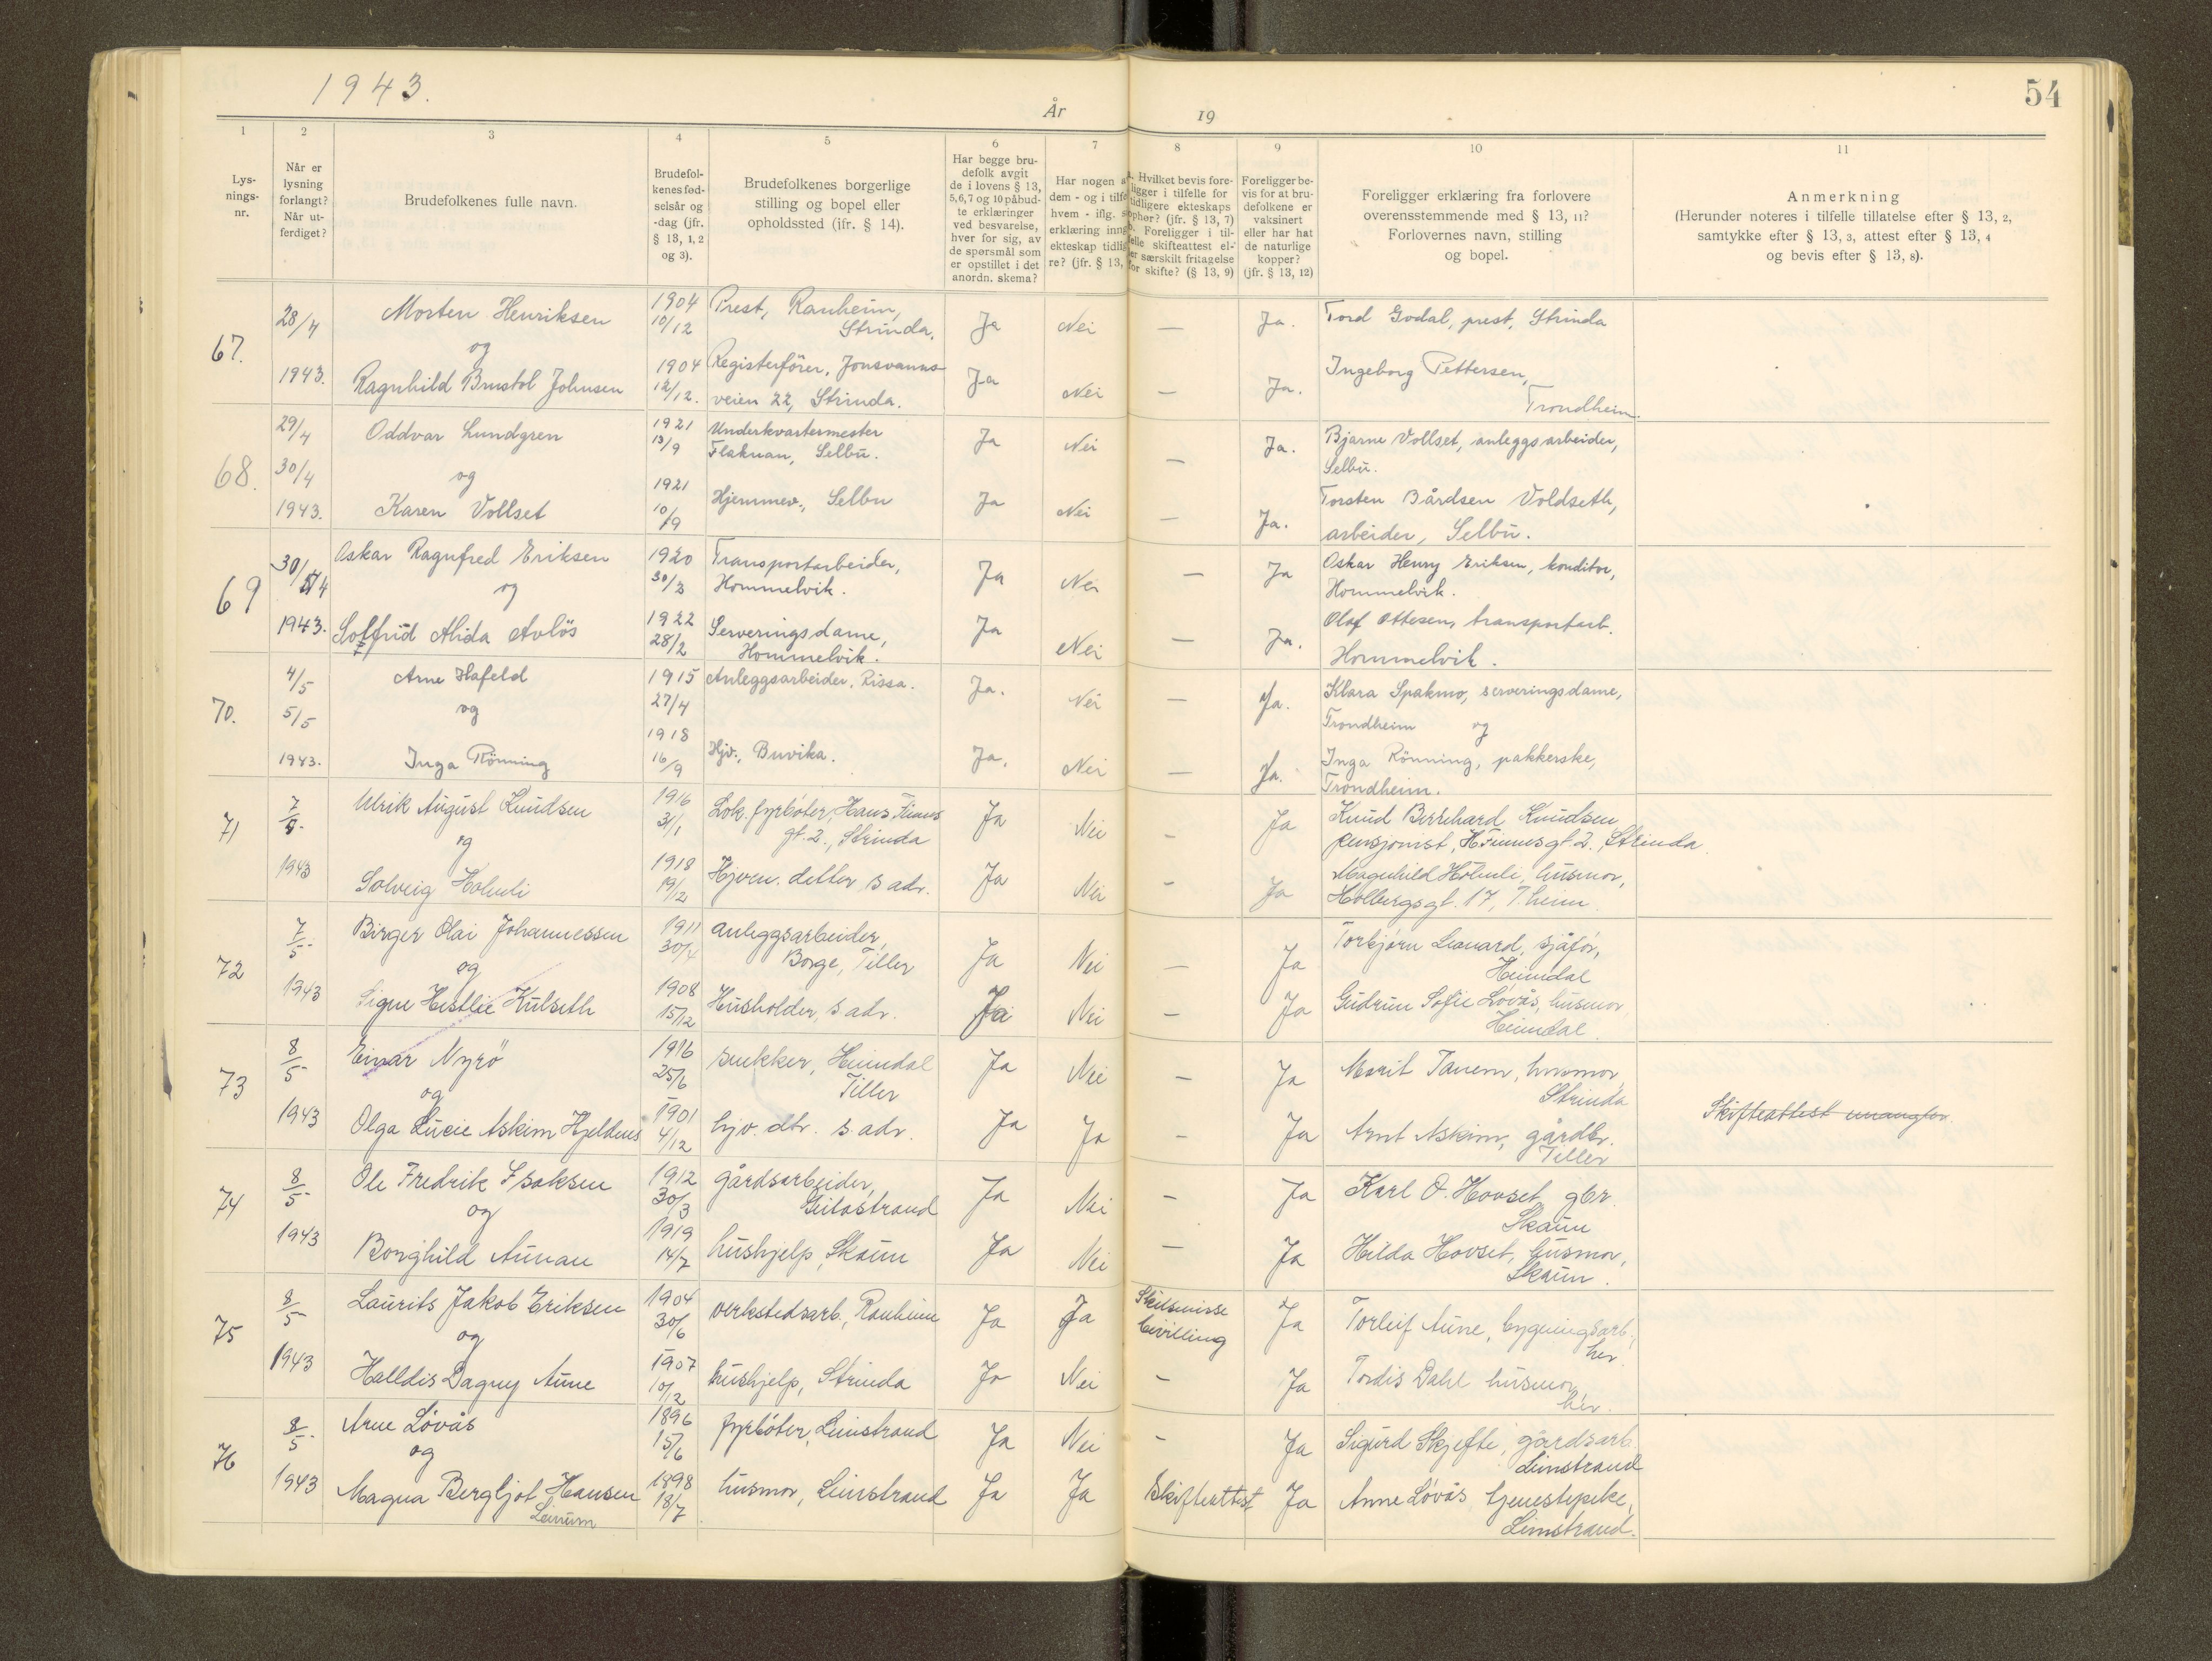 1943.
År
19
54
1
2
3
4
5
6
7
8
9
10
11
Lys-
nings-
nr.
Når er
lysning
forlangt?
Når ut-
ferdiget?
Brudefolkenes fulle navn.
Brudefol-
kenes fød-
selsår og
-dag (jfr.
§ 13, 1, 2
og 3).
Brudefolkenes borgerlige
stilling og bopel eller
opholdssted (jfr. § 14).
Har begge bru-
defolk avgit
de i lovens § 13,
5, 6, 7 og 10 påbud-
te erklæringer
ved besvarelse,
hver for sig, av
de spørsmål som
er opstillet i det
anordn. skema?
Har nogen a
dem - og i tilfe
hvem - iflg. s
erklæring inng
ekteskap tidlig
re? (jfr. § 13,
Hvilket bevis fore-
ligger i tilfelle for
tidligere ekteskaps
ophør? (jfr. § 13, 7)
Foreligger i til-
felle skifteattest el-
er særskilt fritagelse
for skifte? (§ 13, 9)
Foreligger be-
vis for at bru-
defolkene er
vaksinert
eller har hat
de naturlige
kopper?
(jfr. § 13, 12)
Foreligger erklæring fra forlovere
overensstemmende med § 13, 11?
Forlovernes navn, stilling
og bopel.
Anmerkning
(Herunder noteres i tilfelle tillatelse efter § 13, 2,
samtykke efter § 13, 3, attest efter § 13, 4
og bevis efter § 13, 8).
67.
28/4
1943.
Morten Henriksen
og
Ragnhild Brustol Johnsen
1904
10/12
1904
12/12.
Prest, Ranheim,
Strinda.
Registerfører, Jonsvanns-
veien 22, Strinda.
Ja Nei — Ja.
Ja Nei — Ja.
Tord Godal, prest, Strinda
Ingeborg Pettersen,
Trondheim.
68.
29/4
30/4
1943.
Oddvar Lundgren
og
Karen Vollset
1921
13/9
1921
10/9
Underkvartermester
Flaknan, Selbu.
Hjemmev., Selbu
Ja Nei — Ja.
Ja Nei — Ja.
Bjarne Vollset, anleggsarbeider,
Selbu.
Torsten Bårdsen Voldseth,
arbeider, Selbu.
69
30/4
1943.
Oskar Ragnfred Eriksen
og
Solfrid Alida Avlös
1920
30/3
1922
28/2
Transportarbeider,
Hommelvik.
Serveringsdame,
Hommelvik.
Ja Nei — Ja
Ja Nei — Ja.
Oskar Henry Eriksen, konditor,
Hommelvik.
Olaf Ottesen, transportarb.
Hommelvik.
70.
4/5
5/5
1943.
Arne Hafeld
og
Inga Rönning
1915
27/4
1918
16/9
Anleggsarbeider, Rissa.
Hjv., Buvika.
Ja. Nei — Ja.
Ja. Nei — Ja.
Klara Spakmo, serveringsdame,
Trondheim og
Inga Rönning, pakkerske,
Trondheim.
71
7
1943
Ulrik August Knudsen
og
Solveig Holmli
1916
31/1
1918
19/12
Lok. fyrbøter, Hans Finnes
gt. 2., Strinda
Hjvm. datter s adr.
Ja Nei - Ja
Ja Nei - Ja
Knud Bernhard Knudsen
pensjonist, H Finnes gt. 2. Strinda.
Magnhild Holmli, husmor,
Holbergsgt. 17, T.heim.
72
7/5-
1943
Birger Olai Johannessen
og
Signe Hestlie Kulseth
1911
30/4
1908
15/12
anleggsarbeider,
Borge, Tiller
Husholder, s. adr.
Ja Nei — Ja
Ja Nei - Ja
Torbjørn Leonard, sjåfør,
Heimdal
Gudrun Sofie Lovås, husmor,
Heimdal.
73
8/5-
1943
Einar Nyrö
og
Olga Lucie Askim Hjeldnes
1916
25/6
1901
4/12
snekker, Heimdal
Tiller
hjv. dtr. s. adr.
Ja Nei - Ja
Ja Ja - Ja
Marit Tanem, husmor,
Strinda
Arnt Askim, gårdbr.
Tiller
Skifteattest
74
8/5-
1943
Ole Fredrik Isaksen
og
Borghild Aunan
1912
30/3
1919
14/7
gårdsarbeider,
Geitastrand
hushjelp, Skaun
Ja Nei - Ja
Ja Nei - Ja
Karl O. Hovset, gbr.
Skaun
Hilda Hovset, husmor,
Skaun.
75
8/5-
1943
Laurits Jakob Eriksen
og
Halldis Dagny Aune
1904
30/6
1907
10/12
verkstedsarb., Ranheim
hushjelp, Strinda
Ja Ja
Skilsmisse
bevilling
Ja
Ja Nei - Ja
Torleif Aune, bygningsarb.,
her.
Tordis Dahl husmor,
her.
76
8/5-
1943
Arne Løvås
og
Magna Bergljot Hansen
Leinum
1896
15/6
1898
18/7
fyrbøter, Leinstrand
husmor, Leinstrand
Ja Nei - Ja
Ja Ja Skifteattest Ja
Sigurd Skjefte, gårdsarb.
Leinstrand
Anne Løvås, tjenestepike,
Leinstrand.